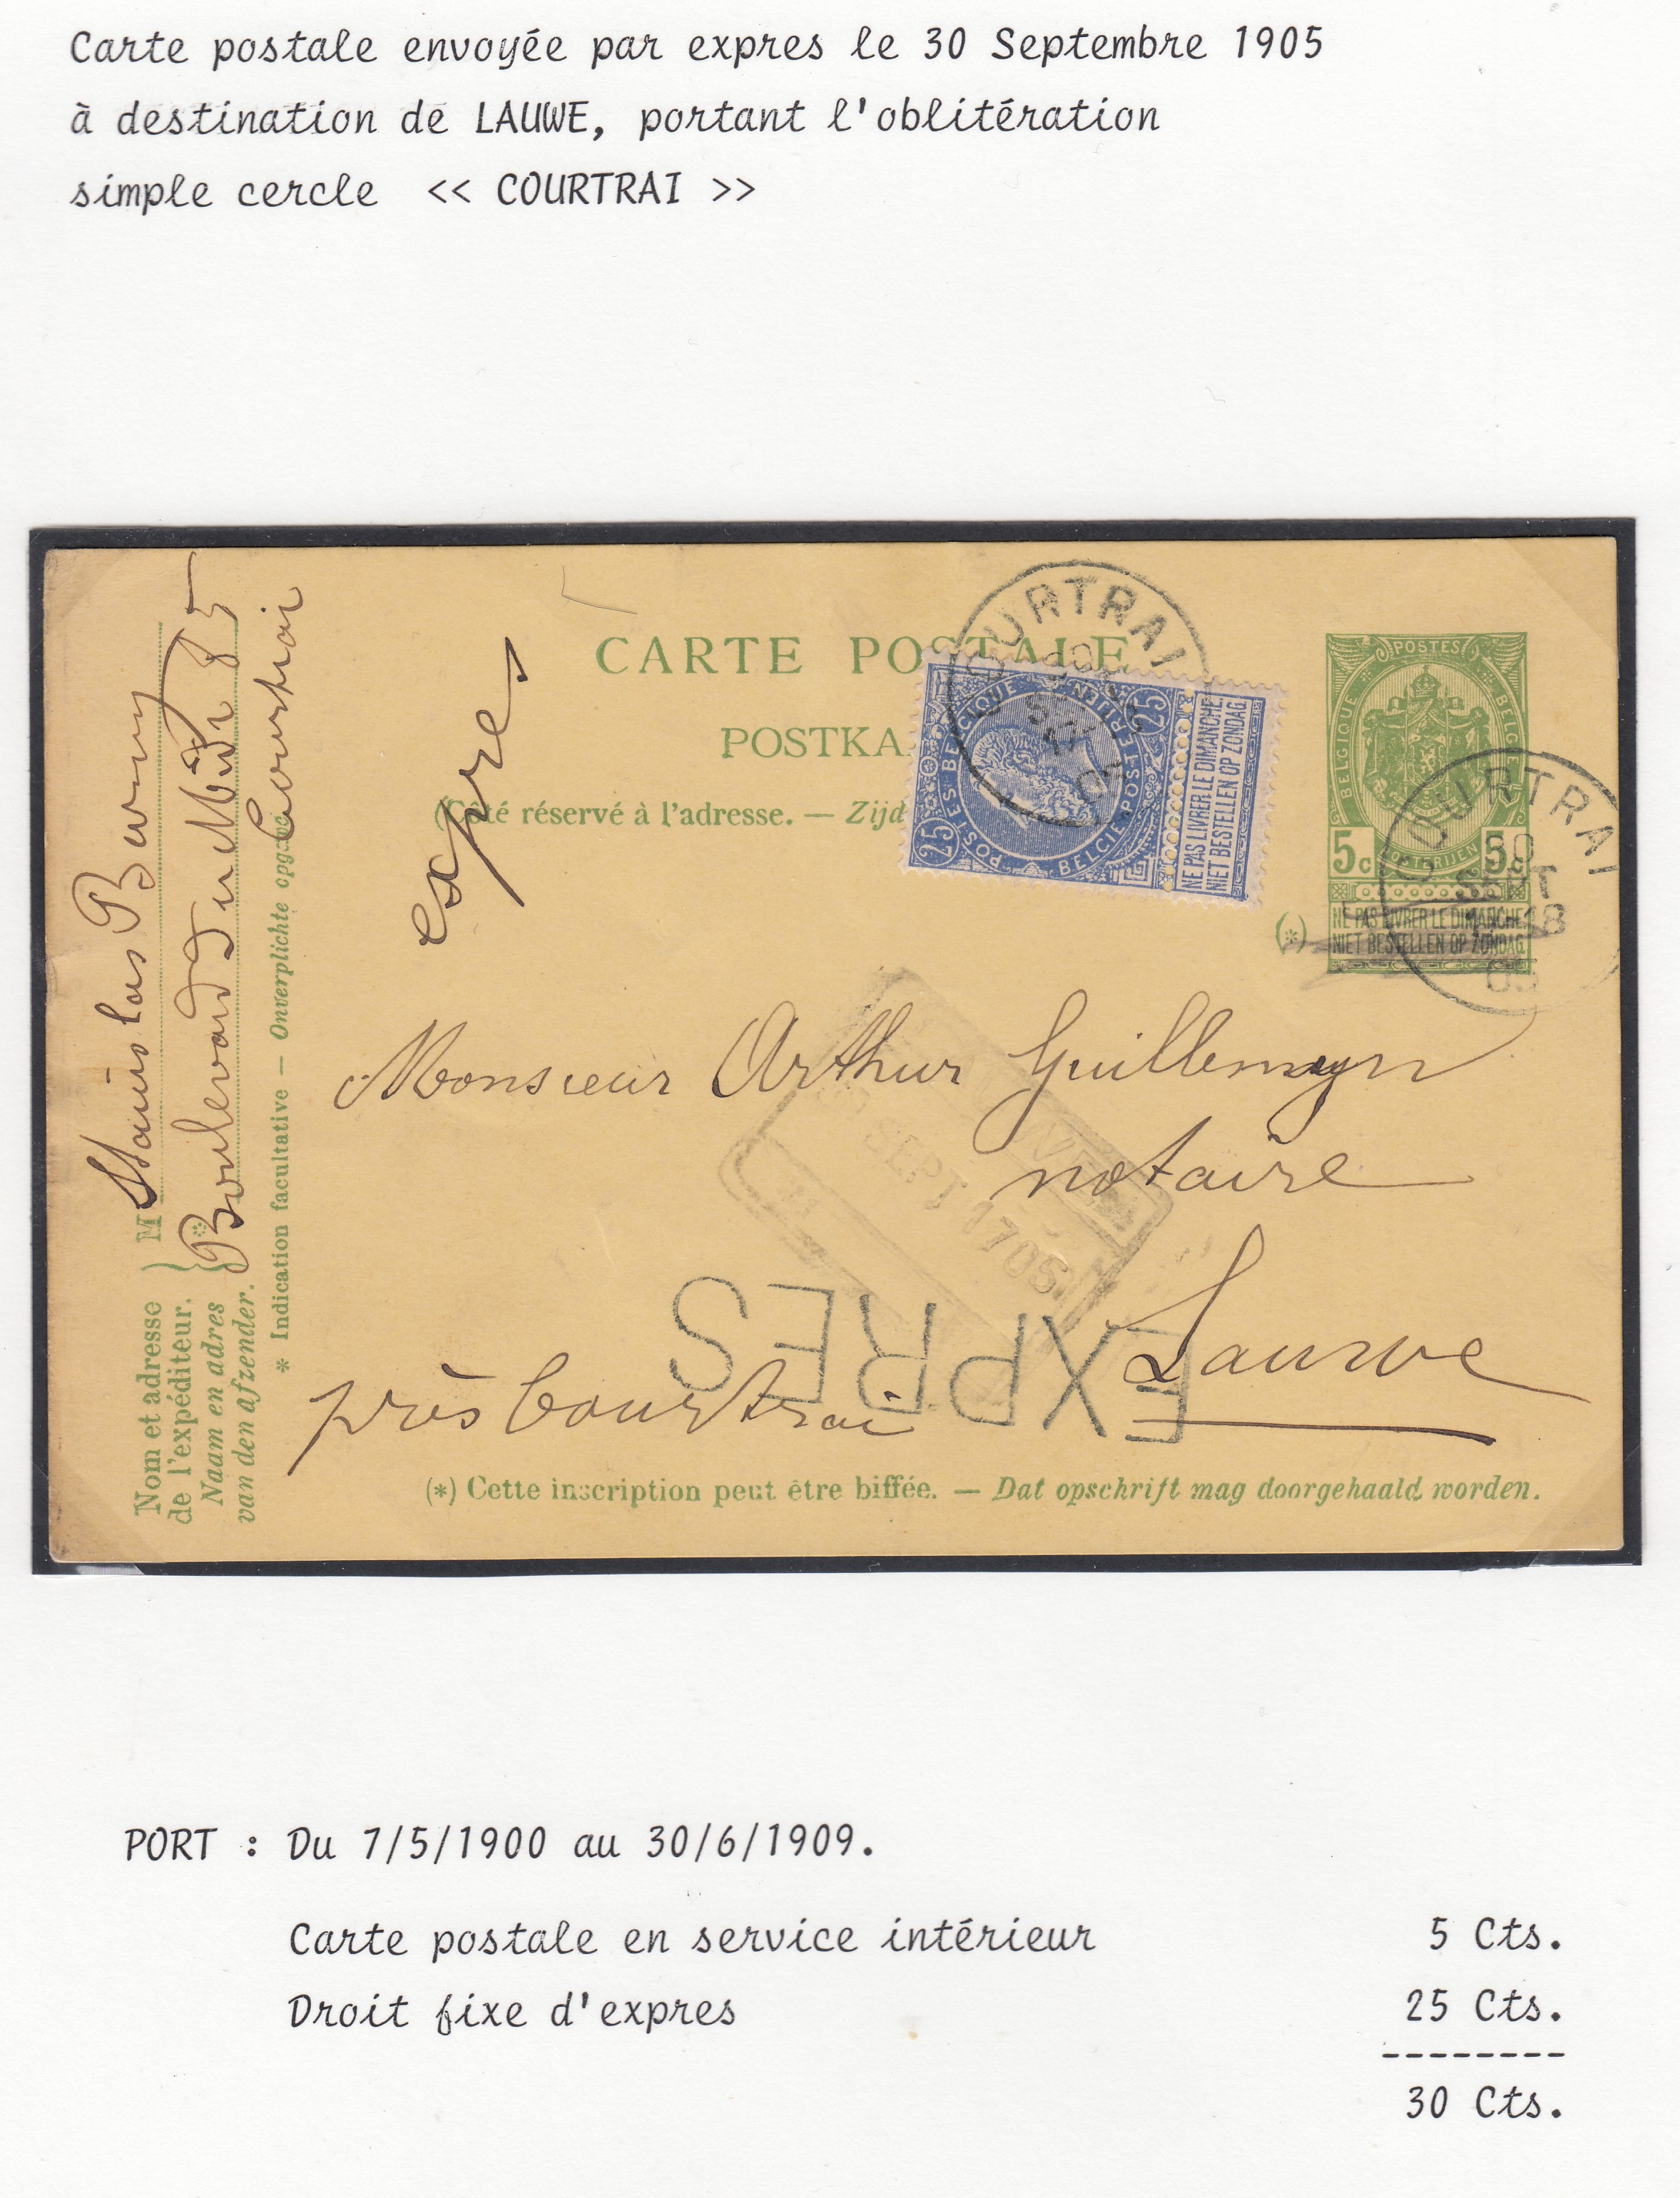 Carte postale envoyée par expres le 30 Septembre 1905
à destination de LAUWE, portant l'oblitération
simple cercle << COURTRAI >>
CARTE POSTALE
POSTKA
(Côté réservé à l'adresse. — Zijd
expres
COURTRAI
POSTES BELGIQUE
POSTERIJEN BELGIE
25 25
NE PAS LIVRER LE DIMANCHE
NIET BESTELLEN OP ZONDAG
POSTES
BELGIQUE
5c 5c
(*)
NE PAS LIVRER LE DIMANCHE
NIET BESTELLEN OP ZONDAG
COURTRAI
30
SEPT
05
Nom et adresse
de l'expéditeur.
Naam en adres
van den afzender.
M Stanislas
Boulevard du Midi 85
Courtrai
* Indication facultative — Onverplichte opgave
Monsieur Arthur Guillemyn
notaire
SEPT. 1705
Lauwe
EXPRES
près Courtrai
(*) Cette inscription peut être biffée. — Dat opschrift mag doorgehaald worden.
PORT : Du 7/5/1900 au 30/6/1909.
Carte postale en service intérieur 5 Cts.
Droit fixe d'expres 25 Cts.
--------
30 Cts.